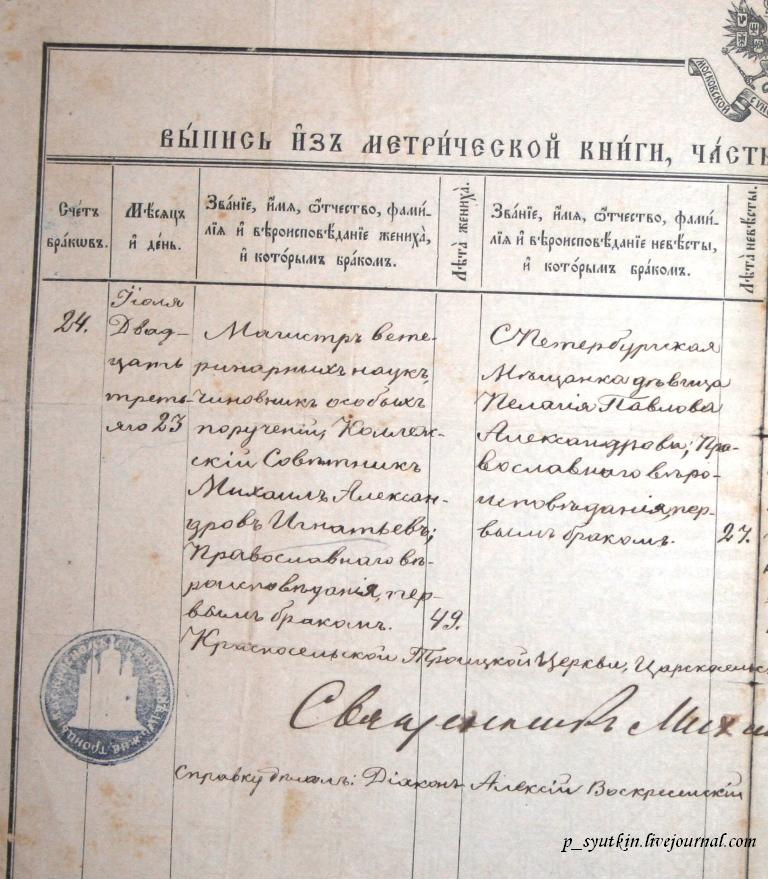 МОСКОВСКОЙ
ВЫ́ПИСЬ И҆ЗЪ МЕТРИ́ЧЕСКОЙ КНИ́ГИ, ЧА́СТЬ
Сче́тъ
бра́кѡвъ.
Мѣсѧцъ
и҆ де́нь.
Зва́нїе, и҆́мѧ, ѻ҆́тчество, фами́-
лїѧ и҆ вѣроисповѣ́данїе жениха̀,
и҆ кото́рымъ бра́комъ.
Лѣ́та̀ жениха̀.
Зва́нїе, и҆́мѧ, ѻ҆́тчество, фами́-
лїѧ и҆ вѣроисповѣ́данїе невѣ́сты,
и҆ кото́рымъ бра́комъ.
Лѣ́та̀ невѣ́сты.
24.
Іюля
Двад-
цать
треть-
яго 23
Магистръ вете-
ринарныхъ наукъ,
чиновникъ особыхъ
порученій, Коллеж-
скій Совѣтникъ
Михаилъ Алексан-
дровъ Игнатьевъ;
Православнаго вѣ-
роисповѣданія, пер-
вымъ бракомъ.
49.
СПетербургская
Мѣщанка дѣвица
Пелагія Павлова
Александрова; Пра-
вославнаго вѣро-
исповѣданія, пер-
вымъ бракомъ.
27.
Красносельской Троицкой Церкви, Царскосельс
Священникъ Миха
Справку дѣлалъ: Діаконъ Алексій Воскресенскій
p_syutkin.livejournal.com